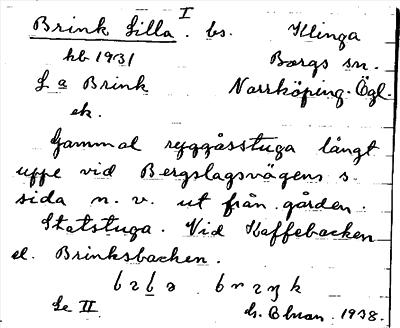 I
Brink Lilla. bs. Klinga
hb 1931 Borgs sn.
L a Brink Norrköping. Ögl.
ek.
Gammal ryggåsstuga långt
uppe vid Bergslagsvägens s.
sida n. v. ut från gården.
Statstuga. Vid Kaffebacken
el. Brinksbacken.
Se II 1938.